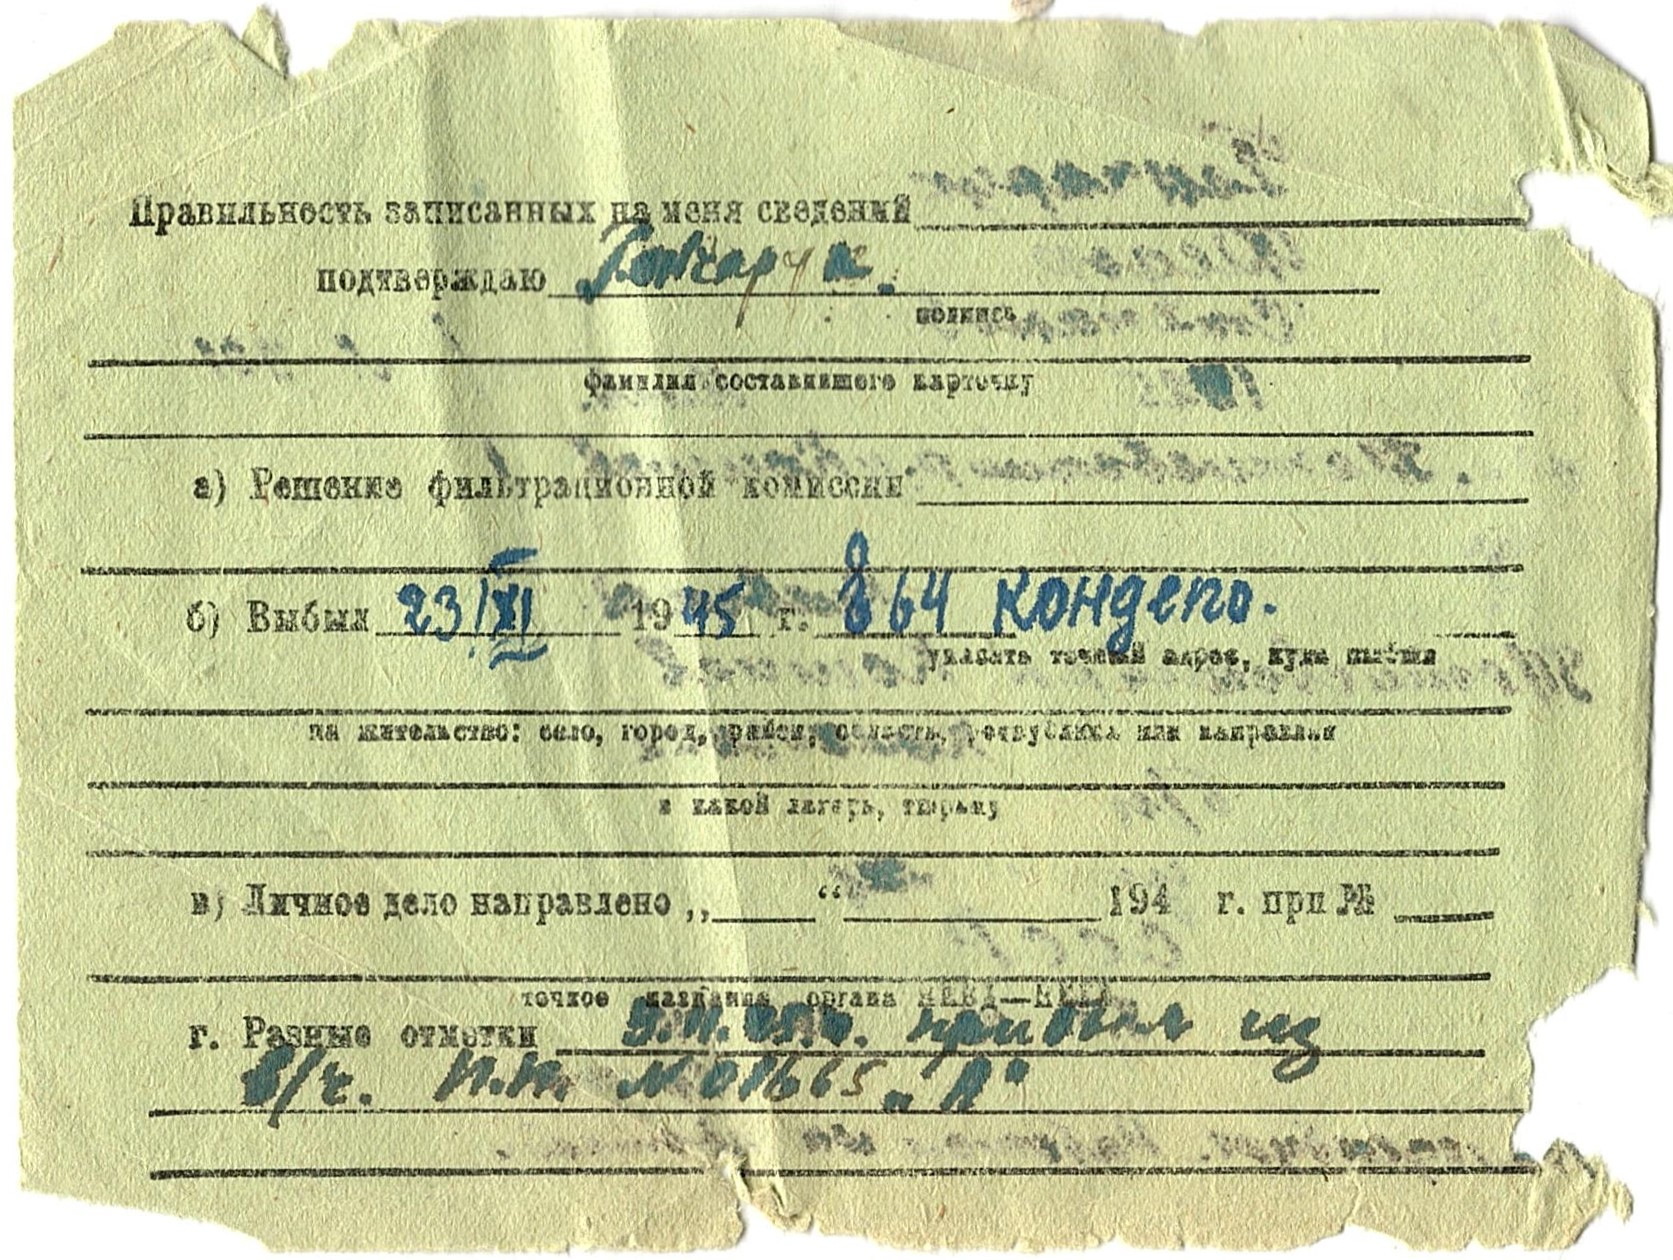 Правильность записанных на меня сведений
подтверждаю Гончарук.
подпись
фамилия составившего карточку
а) Решение фильтрационной комиссии
б) Выбыл 23/XI 1945 г. 864 кондепо.
указать точный адрес, куда выбыл
на жительство: село, город, район, область, республика или направлен
в какой лагерь, тюрьму
в) Личное дело направлено „ “ 194 г. при №
точное название органа НКВД—НКГБ
г. Разные отметки 9.11.45г. прибыл из
в/ч. п.п. № 01665 „А"